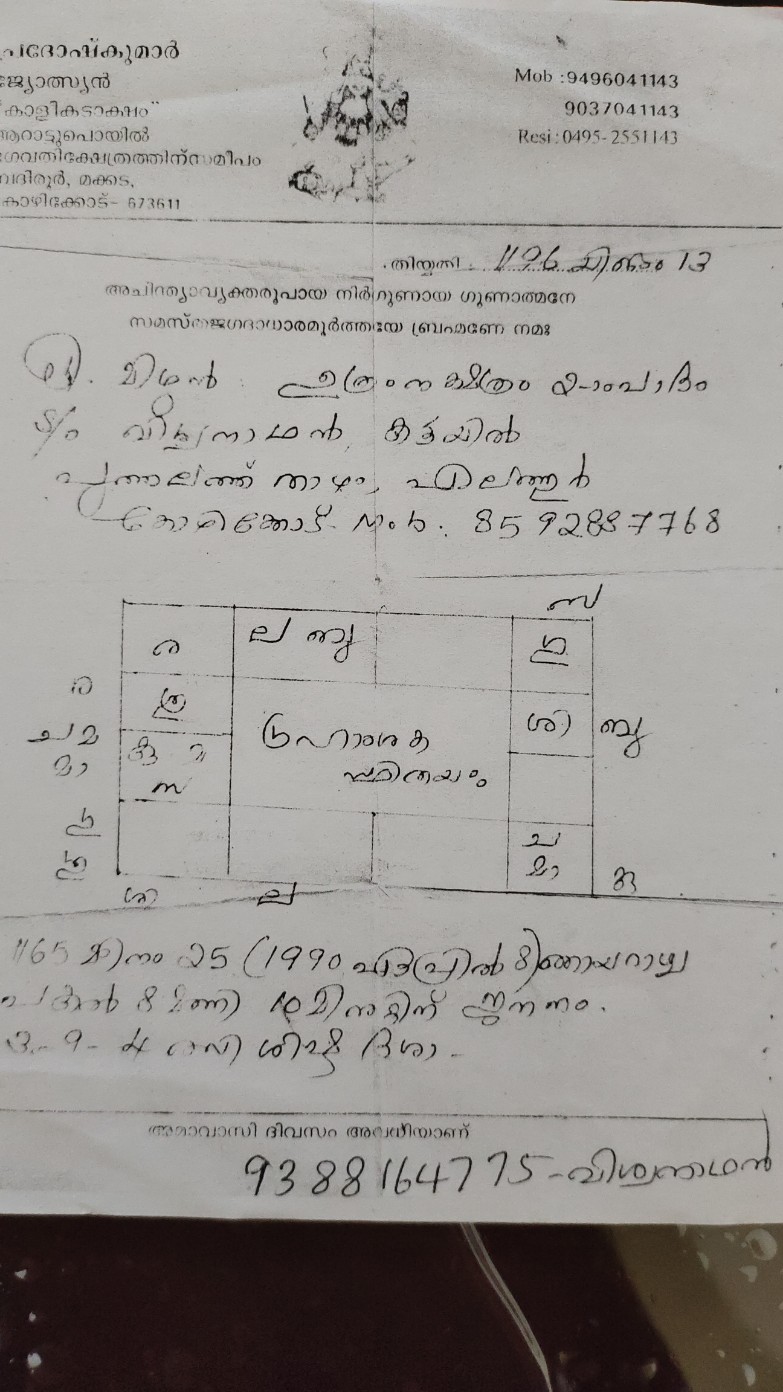 പ്രദോഷ്കുമാർ
ജ്യോത്സ്യൻ
"കാളികടാക്ഷം"
ആറാട്ടുപൊയിൽ
ഭഗവതിക്ഷേത്രത്തിന്സമീപം
ബദിരൂർ, മക്കട,
കോഴിക്കോട്- 673611
Mob :9496041143
9037041143
Resi:0495-2551143
തിയ്യതി : 1196 മിഥുനം 13
അചിന്ത്യാവ്യക്തരൂപായ നിർഗുണായ ഗുണാത്മനേ
സമസ്തജഗദാധാരമൂർത്തയേ ബ്രഹ്മണേ നമഃ
മിഥുൻ ഉത്രംനക്ഷത്രം പാദം
S/o വിശ്വനാഥൻ,
പുത്തലത്ത് താഴം, എലത്തൂർ
കോഴിക്കോട്. നമ്പർ. 8592887768
സ
ര ല ബു ഗു
ര ശു ശി ബു
ച മ കു മ ഗ്രഹാംശക
മാ സ സ്ഥിതയഃ
ഗു ച
ശു മാ കു
ശി ല
1165 മീനം 25 (1990 ഏപ്രിൽ 8) ഞായറാഴ്ച
പകൽ 8 മണി 10 മിനുറ്റിന് ജനനം.
3-9-4 രവി ശിഷ്ട ദശാ -
അമാവാസി ദിവസം അവധിയാണ്
9388164775-വിശ്വനാഥൻ